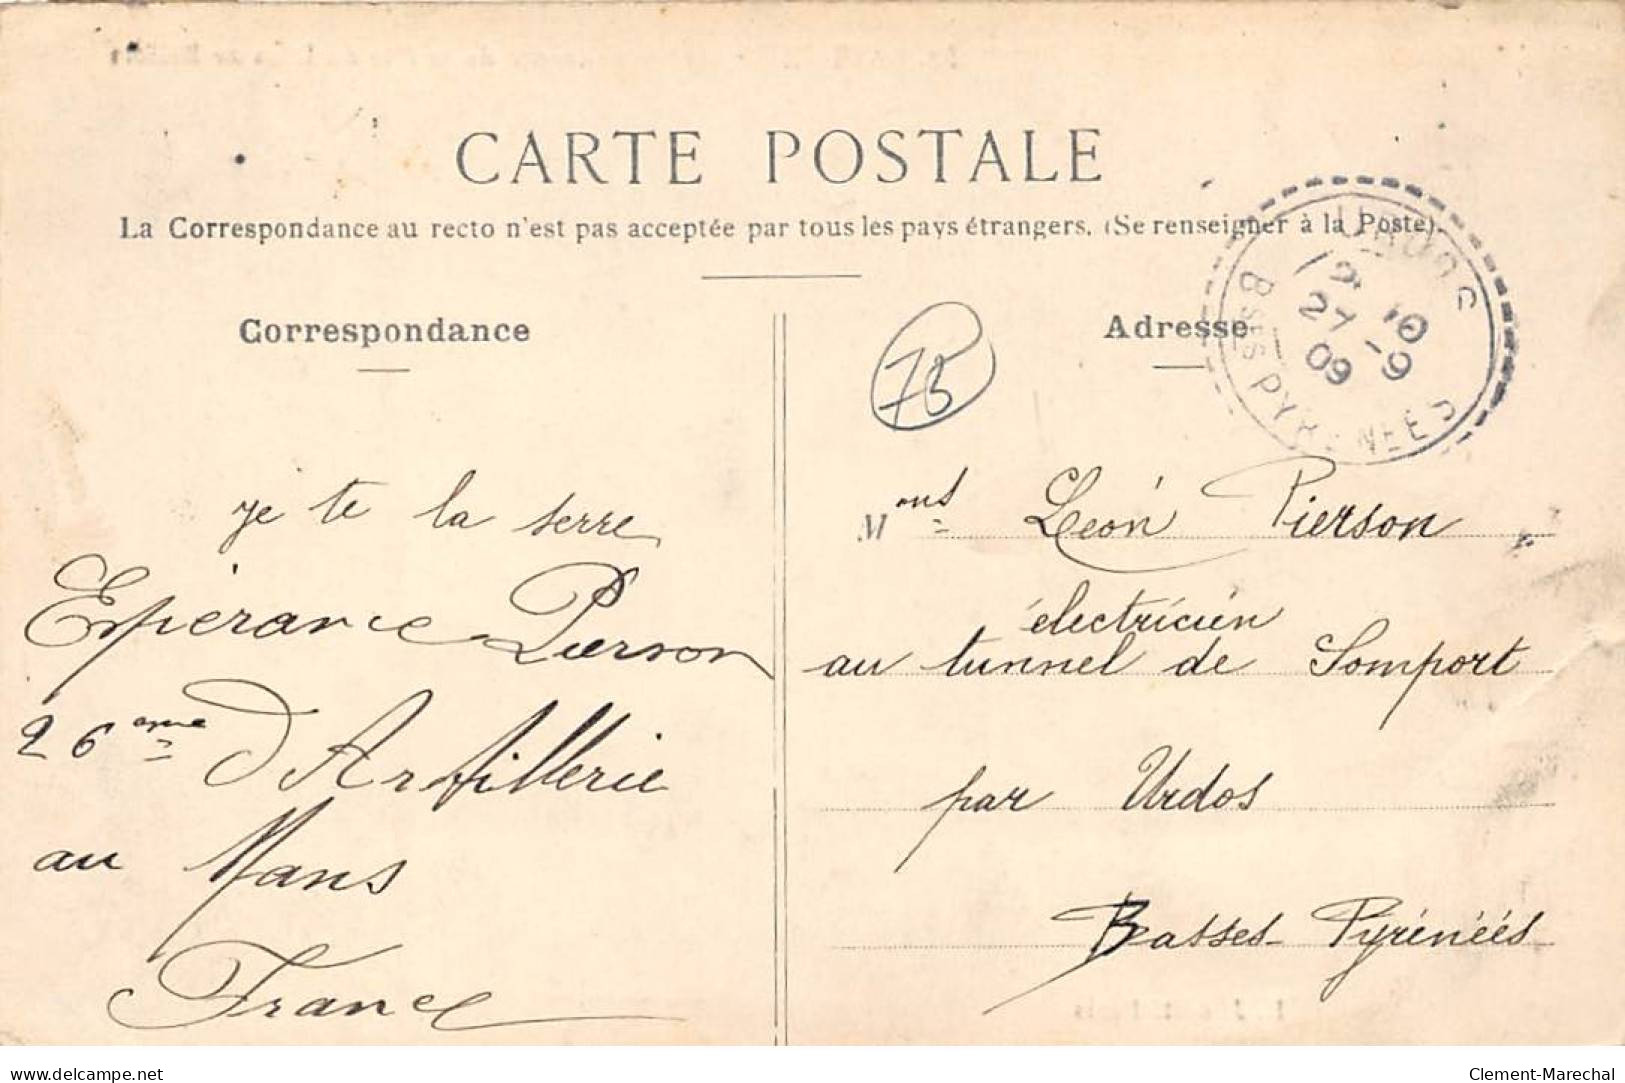 CARTE POSTALE
La Correspondance au recto n'est pas acceptée par tous les pays étrangers. (Se renseigner à la Poste).
Correspondance
je te la serre
Espérance Pierson
26ème d'Artillerie
au Mans
France
75
Adresse
Bses PYRENEES
10
27 -9
09
Mons Léon Pierson
électricien
au tunnel de Somport
par Urdos
Basses-Pyrénéés
delcampe.net
Clement-Marechal